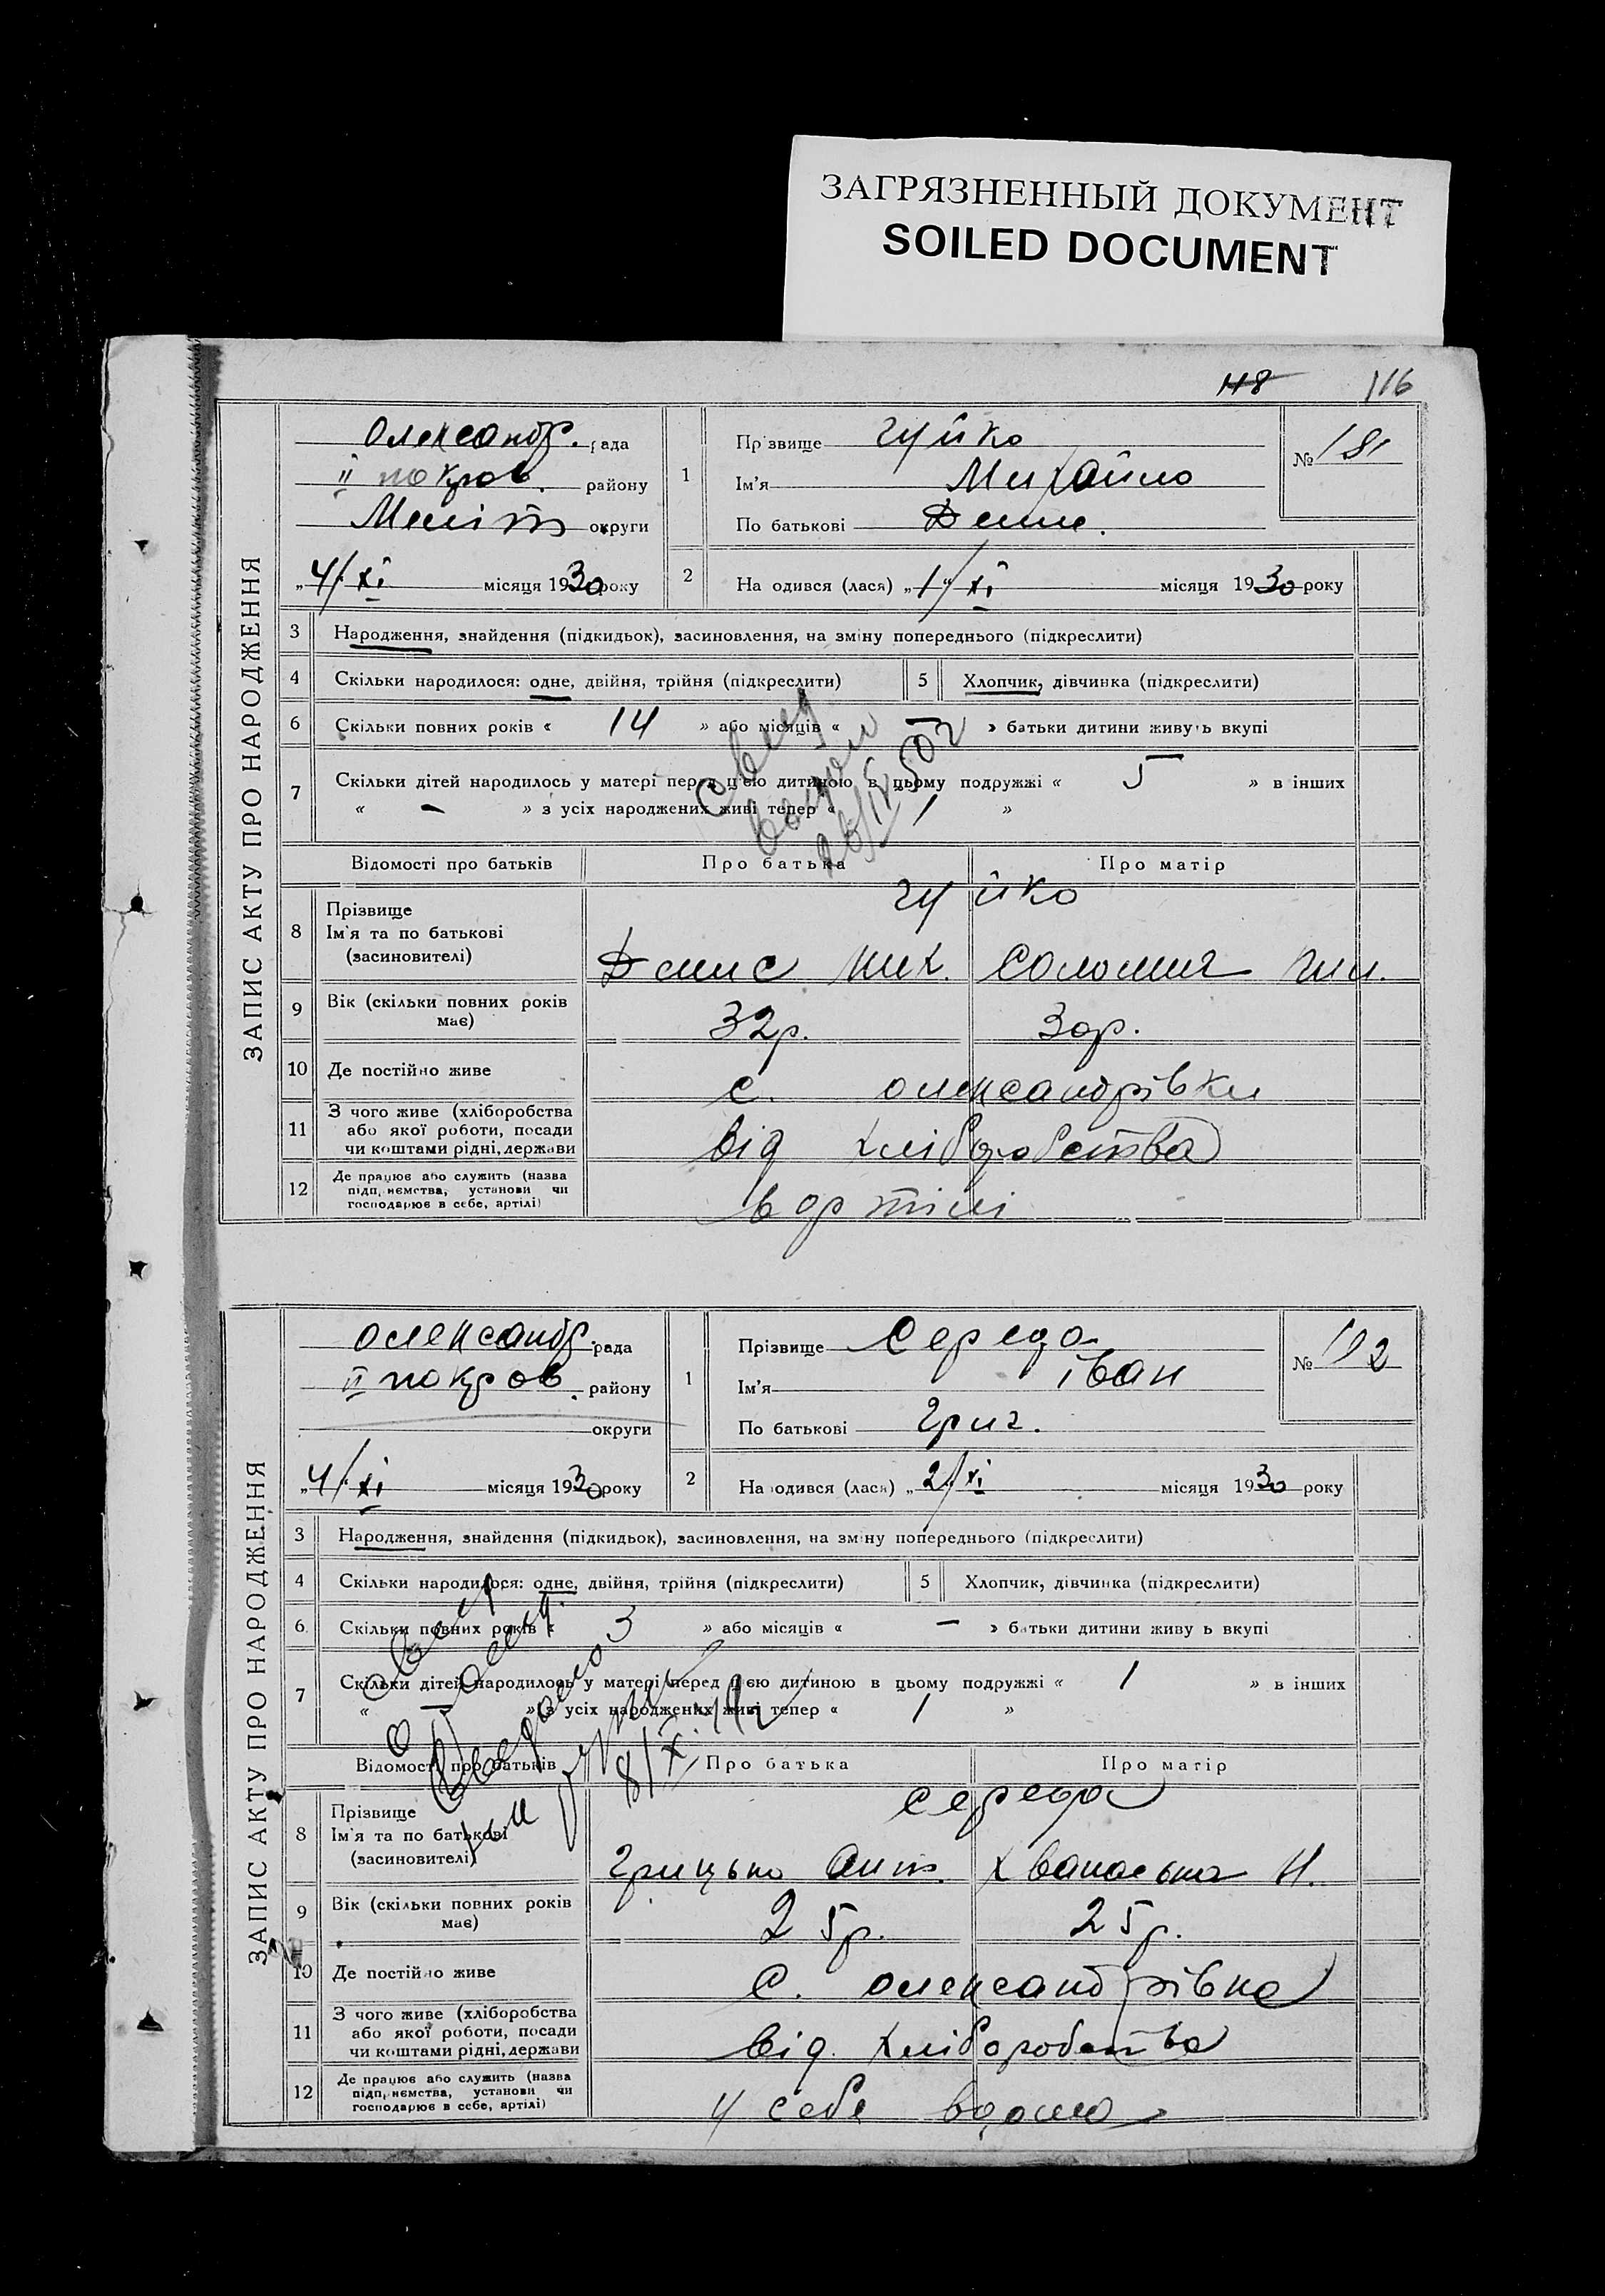 ЗАГРЯЗНЕННЫЙ ДОКУМЕНТ
SOILED DOCUMENT
118 116
ЗАПИС АКТУ ПРО НАРОДЖЕННЯ
Олександр. рада
ІІ покров. району
Меліт округи
„4/XI місяця 1930 року
1 Прізвище Чуйко
Ім'я Михайло
По батькові Денис.
№ 181
2 На одився (лася) „1/XI місяця 1930 року
3 Народження, знайдення (підкидьок), засиновлення, на зміну попереднього (підкреслити)
4 Скільки народилося: одне, двійня, трійня (підкреслити) 5 Хлопчик, дівчинка (підкреслити)
6 Скільки повних років « 14 » або місяців « — » батьки дитини живуть вкупі
7 Скільки дітей народилось у матері перед цією дитиною в цьому подружжі « 5 » в інших
« — » з усіх народжених живі тепер « 1 »
Відомості про батьків Про батька Про матір
8 Прізвище Чуйко
Ім'я та по батькові
(засиновителі) Денис Мих. Соломия
9 Вік (скільки повних років має) 32р. 30р.
10 Де постійно живе с. Олександрівки
11 З чого живе (хліборобства
або якої роботи, посади
чи коштами рідні, держави від хліборобства
12 Де працює або служить (назва
підприємства, установи чи
господарює в себе, артілі) в артілі
ЗАПИС АКТУ ПРО НАРОДЖЕННЯ
Олександр. рада
ІІ покров. району
округи
„4/XI місяця 1930 року
1 Прізвище Середа
Ім'я Іван
По батькові Григ.
№ 192
2 На одився (лася) „2/XI місяця 1930 року
3 Народження, знайдення (підкидьок), засиновлення, на зміну попереднього (підкреслити)
4 Скільки народилося: одне, двійня, трійня (підкреслити) 5 Хлопчик, дівчинка (підкреслити)
6. Скільки повних років « 3 » або місяців « — » батьки дитини живу ь вкупі
7 Скільки дітей народилось у матері перед цією дитиною в цьому подружжі « 1 » в інших
« — » з усіх народжених живі тепер « 1 »
Відомості про батьків Про батька Про матір
8 Прізвище Середа
Ім'я та по батькові
(засиновителі) Грицько Ант. Н.
9 Вік (скільки повних років має) 25р. 25р.
10 Де постійно живе с. Олександрівка
11 З чого живе (хліборобства
або якої роботи, посади
чи коштами рідні, держави від. хліборобства
12 Де працює або служить (назва
підприємства, установи чи
господарює в себе, артілі) у себе вдома